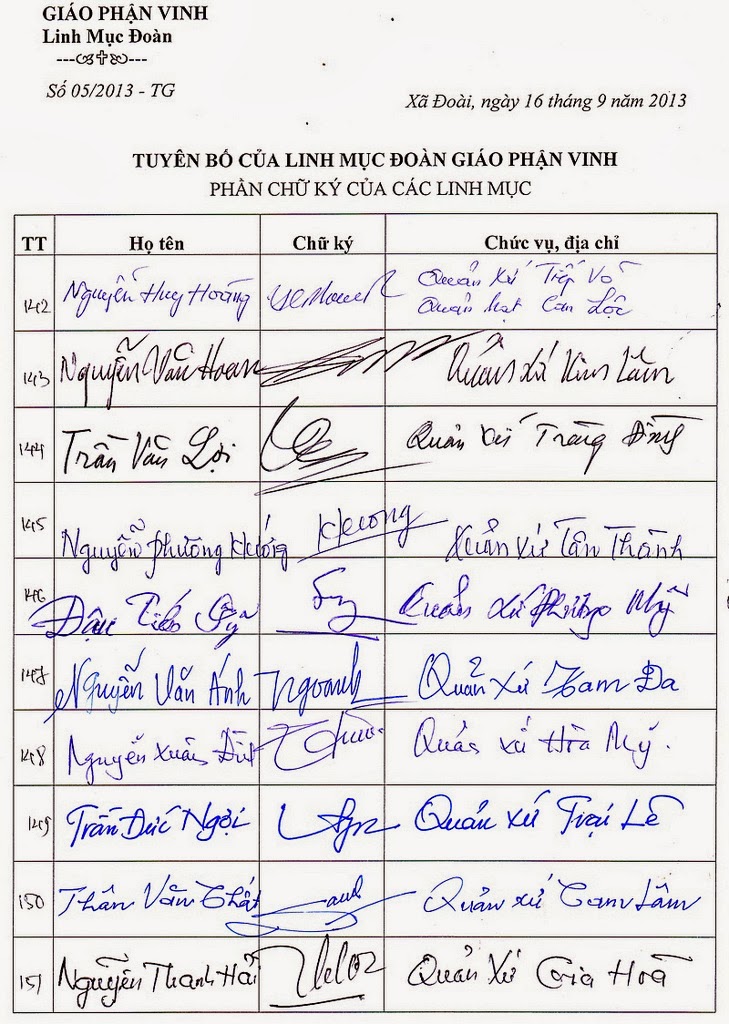 GIÁO PHẬN VINH
Linh Mục Đoàn
Số 05/2013 - TG
Xã Đoài, ngày 16 tháng 9 năm 2013
TUYÊN BỐ CỦA LINH MỤC ĐOÀN GIÁO PHẬN VINH
PHẦN CHỮ KÝ CỦA CÁC LINH MỤC
TT Họ tên Chữ ký Chức vụ, địa chỉ
142 Nguyễn Huy Hoàng Quản xứ Tiếp Võ
Quản hạt Can Lộc
143 Nguyễn Văn Hoan Quản xứ Kim Lâm
144 Trần Văn Lợi Quản xứ Tràng Đình
145 Nguyễn Phương Hướng Quản xứ Tân Thành
146 Đậu Tiến Quản xứ Mỹ
147 Nguyễn Văn Ánh Quản xứ Tam Đa
148 Nguyễn Xuân Quản xứ Hòa Mỹ.
149 Trần Đức Ngợi Quản xứ Trại Lê
150 Thân Văn Chất Quản xứ Cam Lâm
151 Nguyễn Thanh Hải Quản xứ Gia Hoà